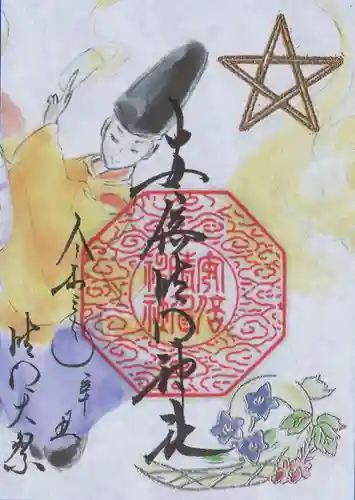 安倍晴明神社
安倍
晴明
令和三年 辛丑
晴明大祭